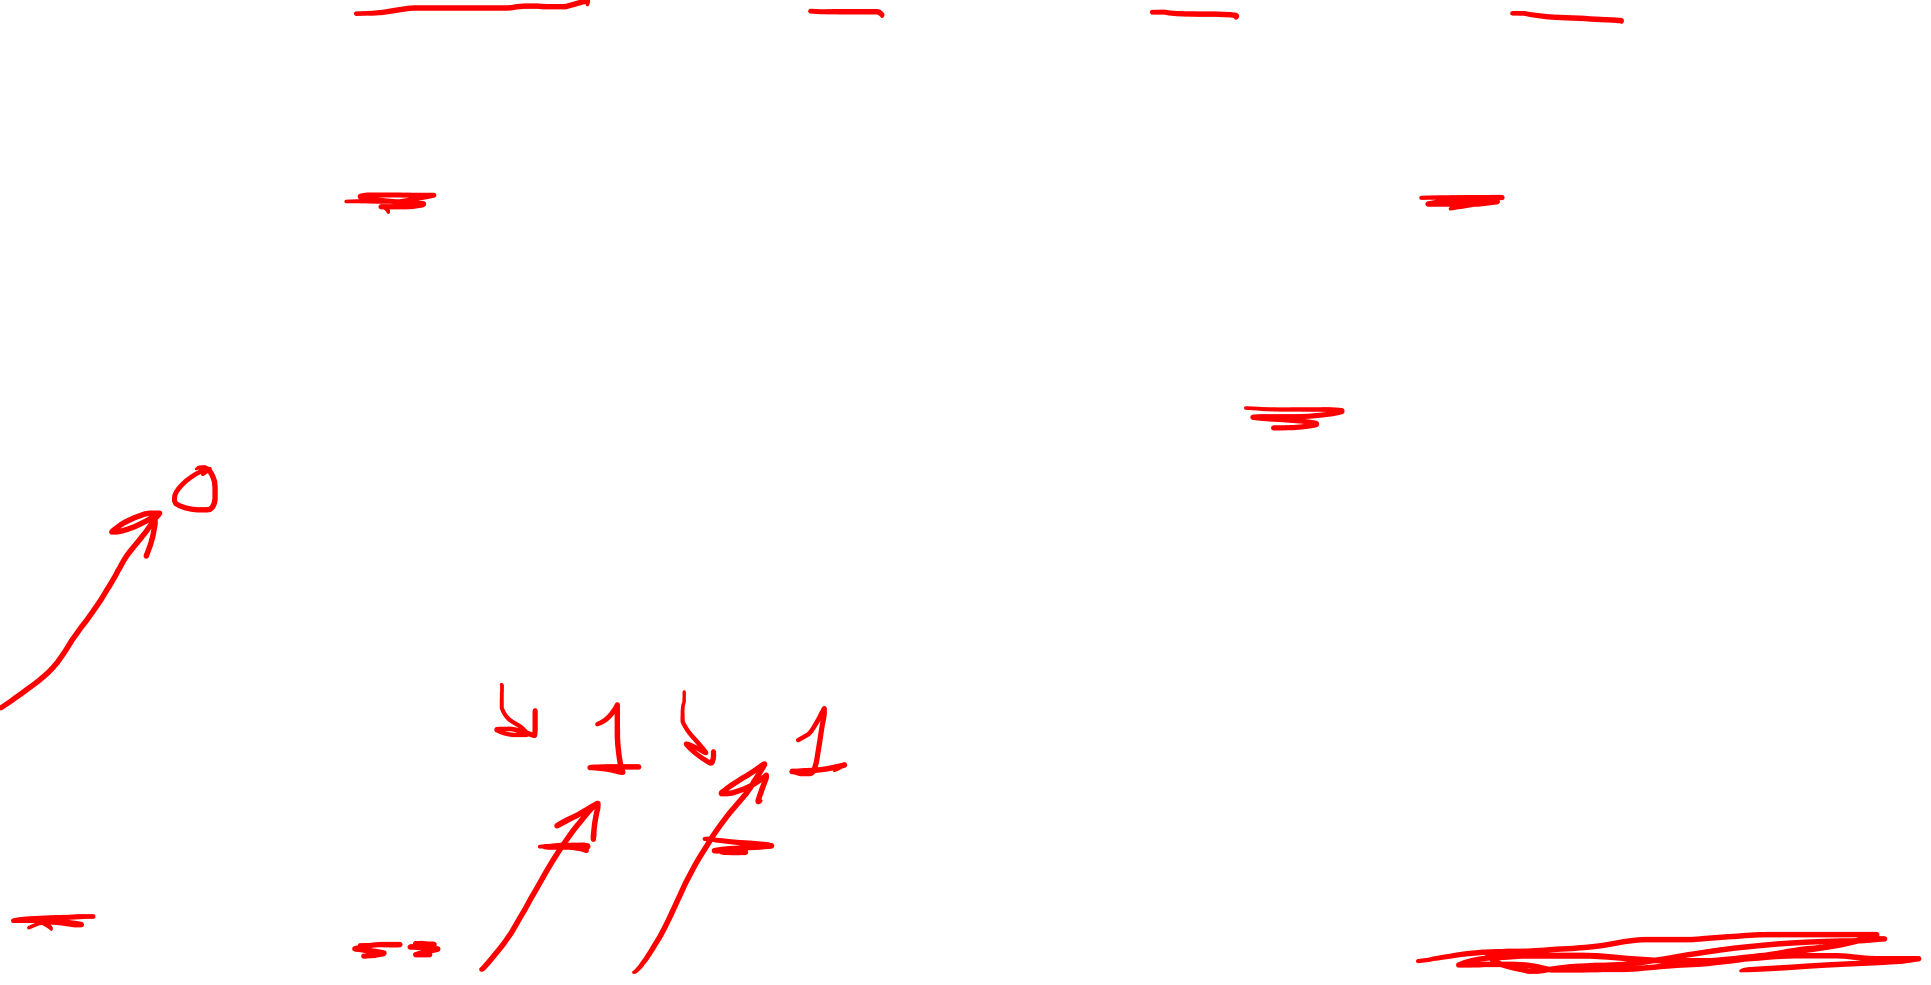 0
1 1